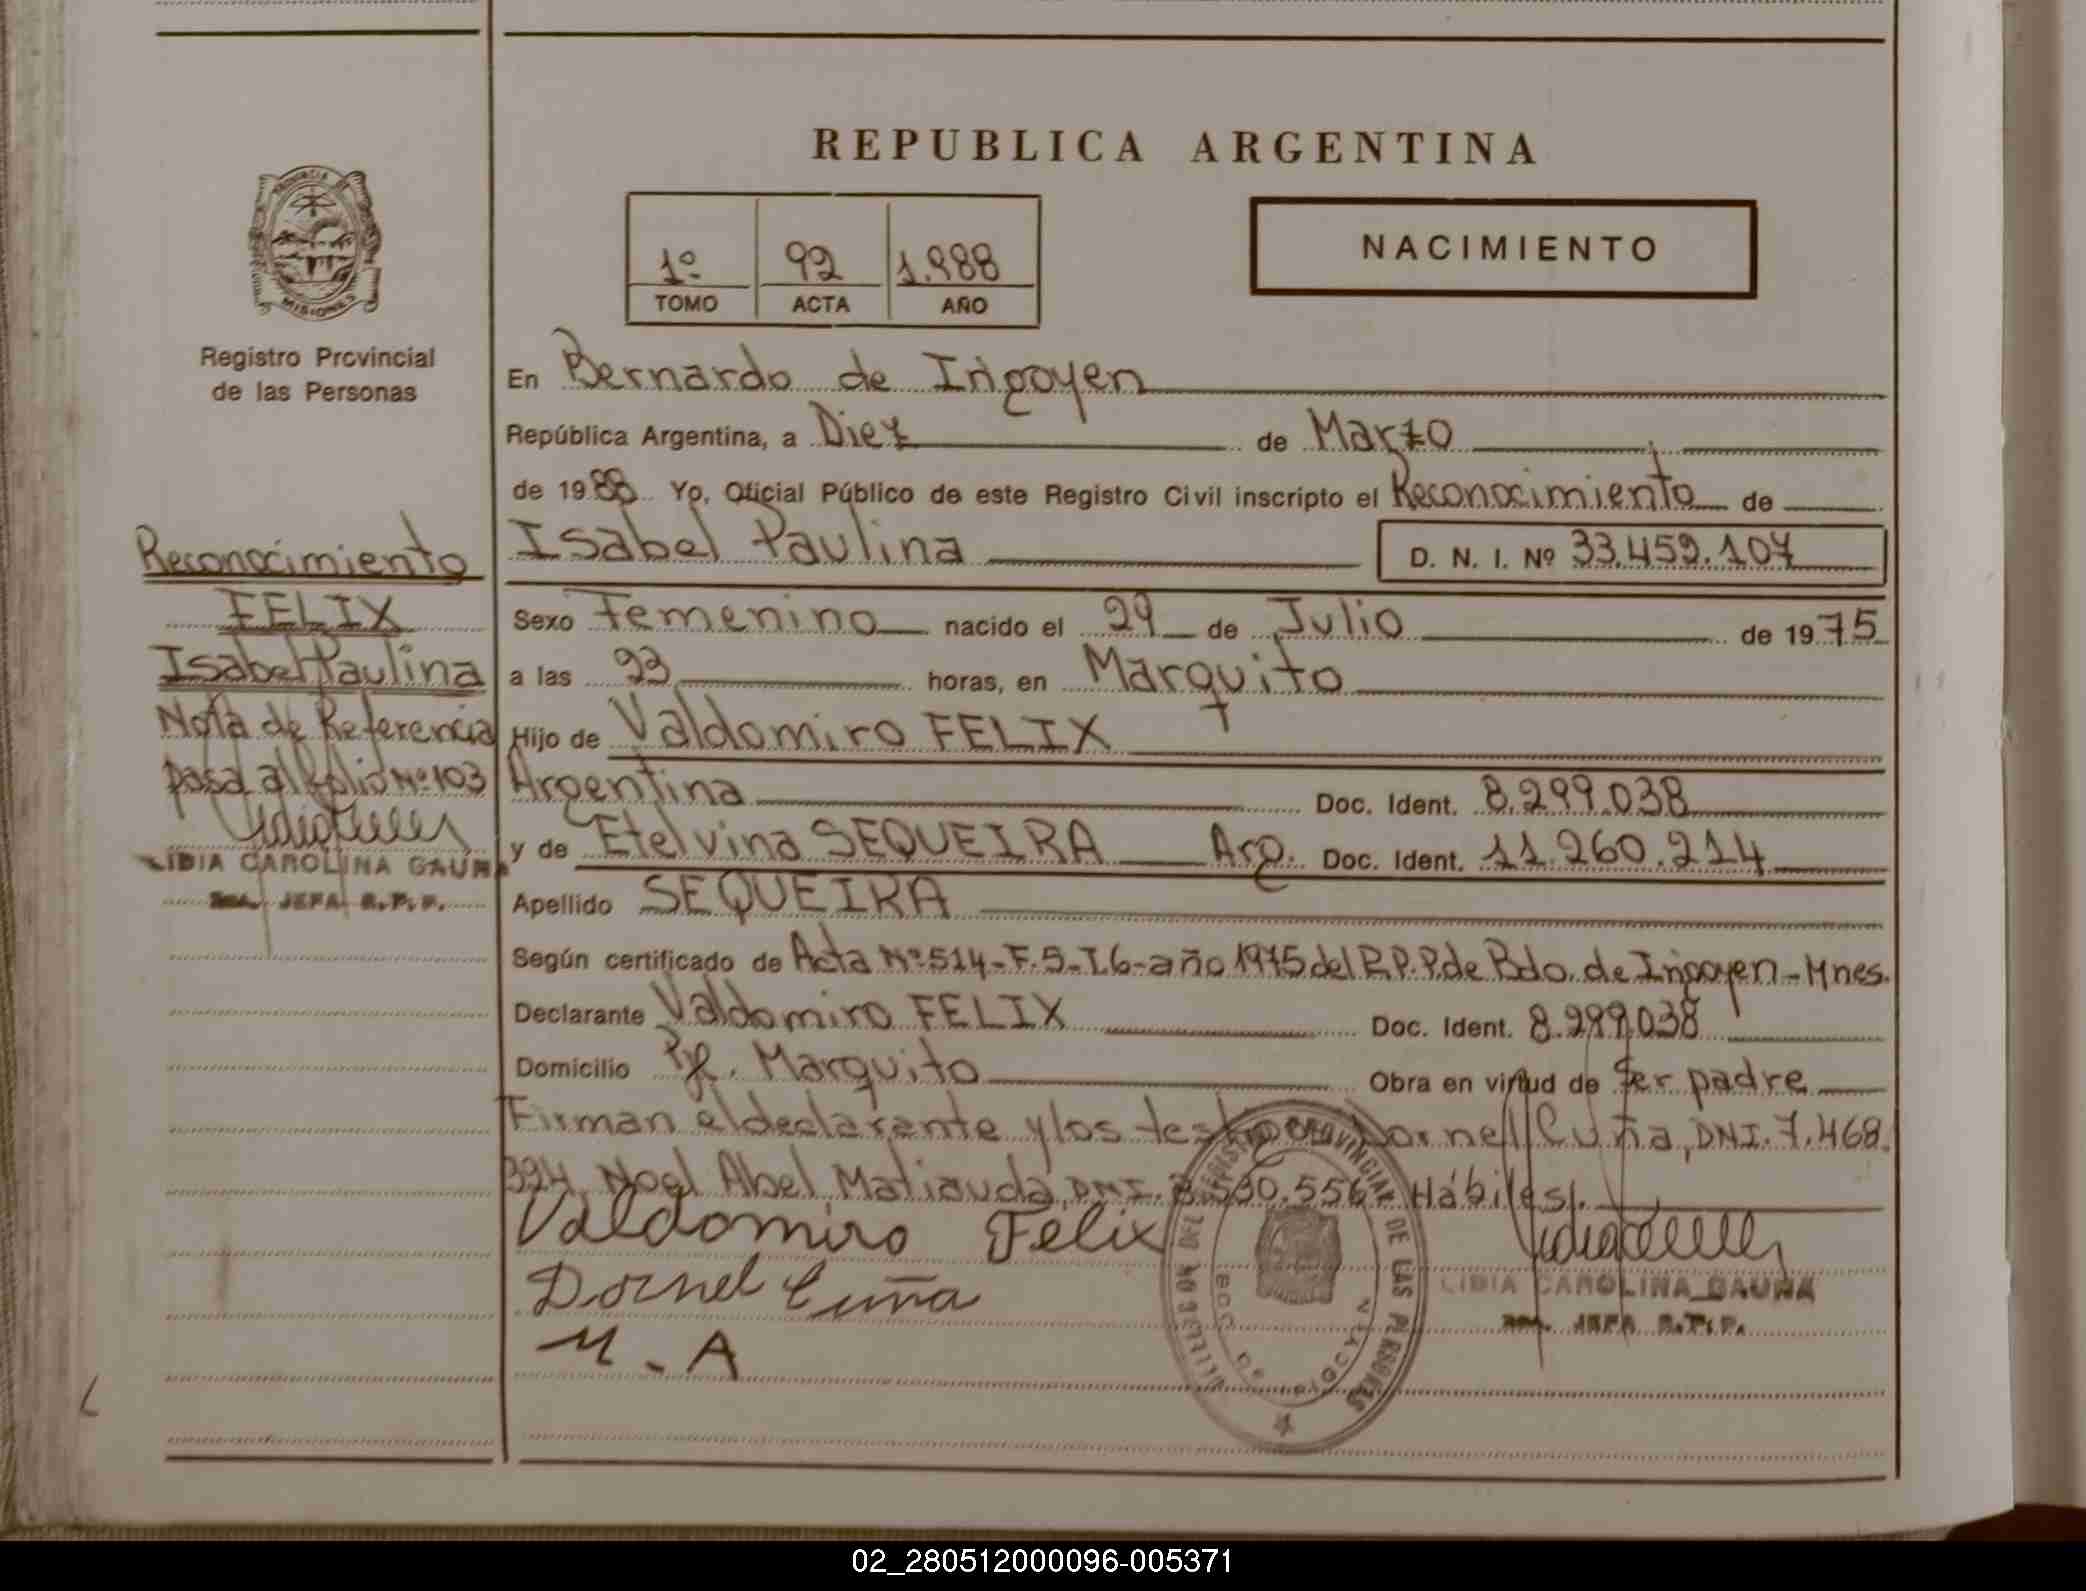 REPUBLICA ARGENTINA
PROVINCIA DE
MISIONES
Registro Provincial
de las Personas
1º 92 1.988
TOMO ACTA AÑO
NACIMIENTO
En Bernardo de Irigoyen
República Argentina, a Diez de Marzo
de 1988 Yo, Oficial Público de este Registro Civil inscripto el Reconocimiento de
Isabel Paulina D. N. I. Nº 33.459.107
Sexo Femenino nacido el 29 de Julio de 1975
a las 23 horas, en Marquito
Hijo de Valdomiro FELIX
Argentina Doc. Ident. 8.299.038
y de Etelvina SEQUEIRA Arg. Doc. Ident. 11.260.214
Apellido SEQUEIRA
Según certificado de Acta Nº 514-F.5-T.6-año 1975 del R.P.P. de Bdo. de Irigoyen-Mnes.
Declarante Valdomiro FELIX Doc. Ident. 8.299.038
Domicilio Pje. Marquito Obra en virtud de ser padre
Firman el declarante y los testigos Dornell Cuña, DNI. 7.468.
394, Noel Abel Matiauda, DNI. 530.556 Hábiles/.
Valdomiro Felix
Dornel Cuña
M. A
LIDIA CAROLINA GAUNA
JEFA R.P.P.
REGISTRO PROVINCIAL DE LAS PERSONAS
Reconocimiento
FELIX
Isabel Paulina
Nota de Referencia
pasa al folio Nº 103
LIDIA CAROLINA GAUNA
JEFA R.P.P.
02_280512000096-005371